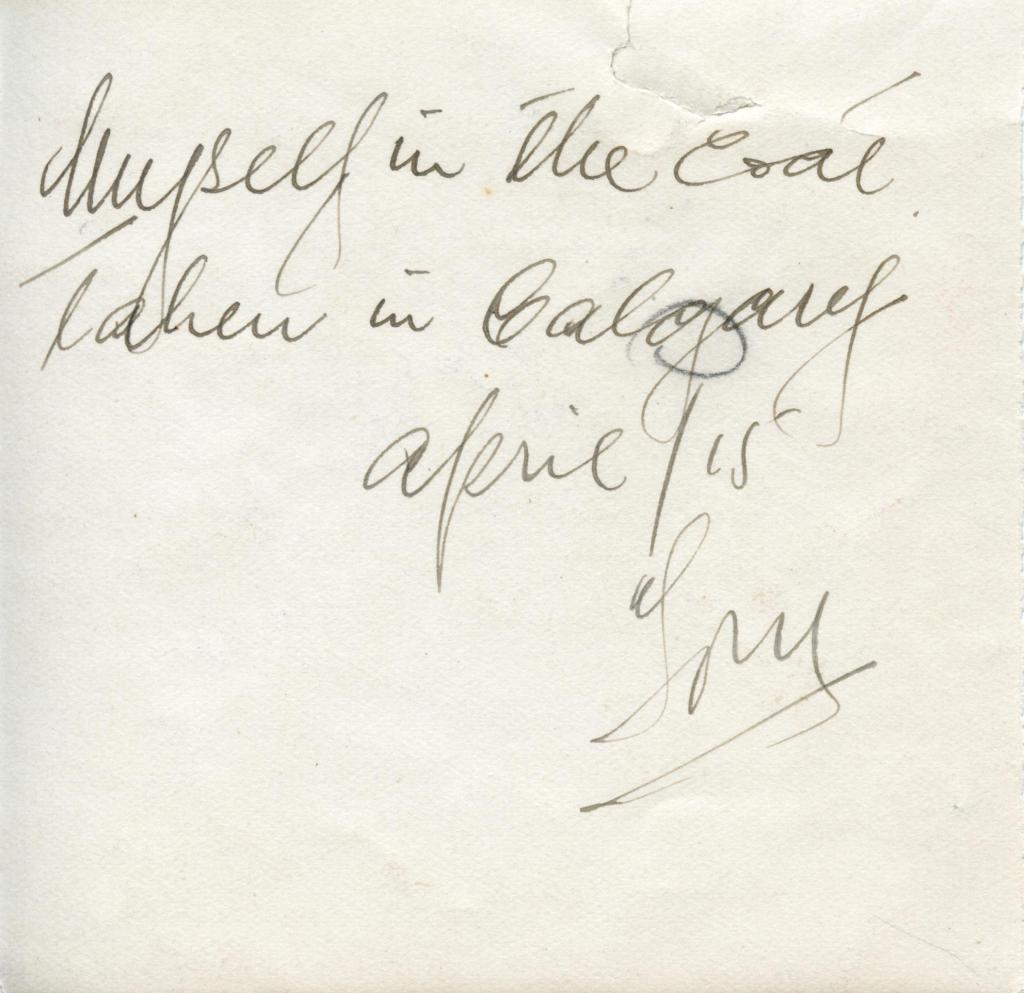 Myself in the Coat
Taken in Calgary
April / 15